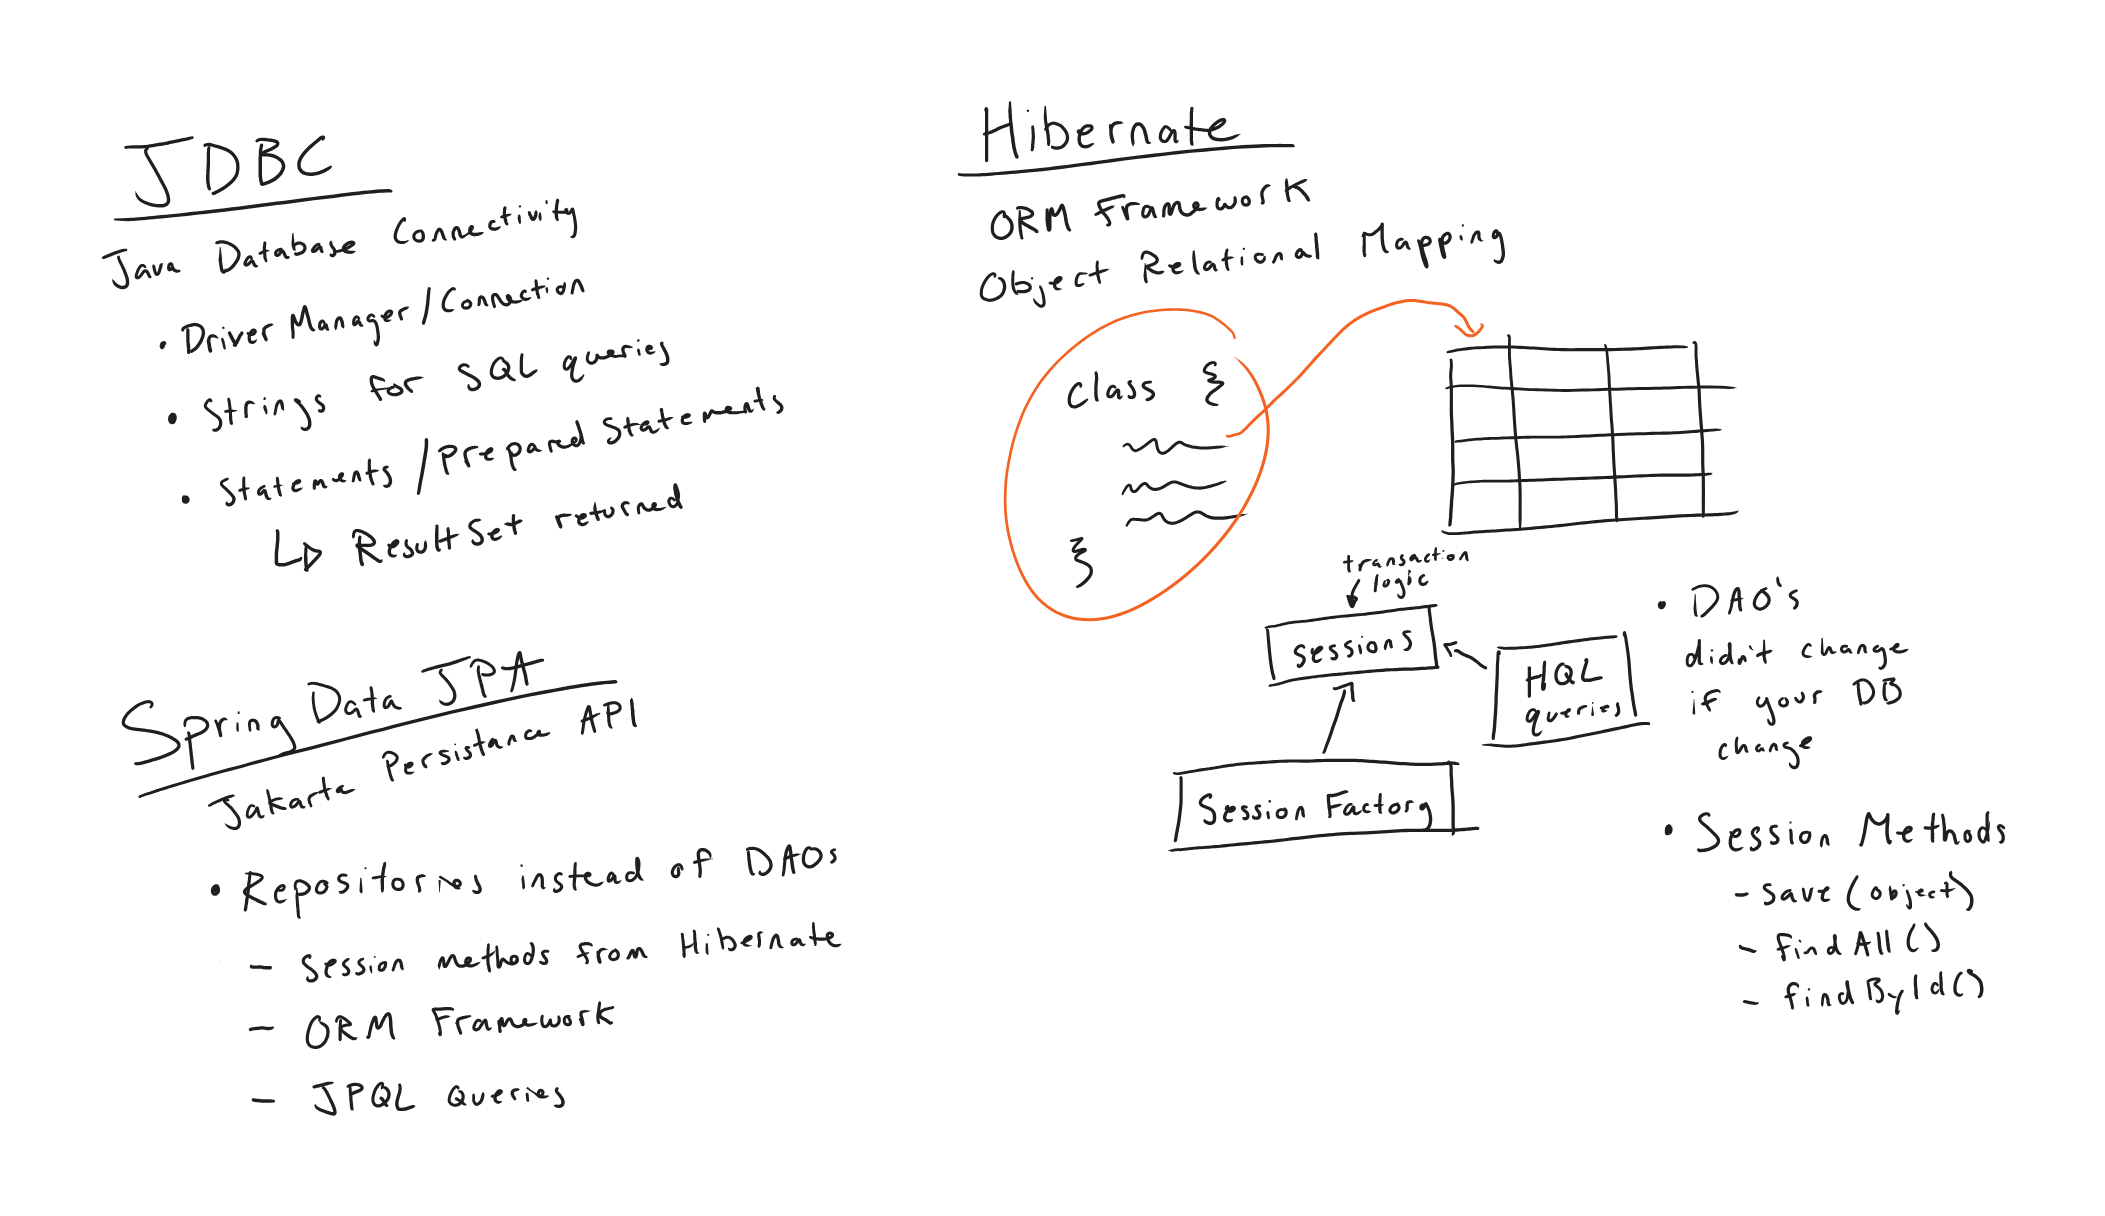 JDBC
Java Database Connectivity
• Driver Manager/Connection
• Strings for SQL queries
• Statements/Prepared Statements
ResultSet returned
Spring Data JPA
Jakarta Persistance API
• Repositories instead of DAOs
- Session methods from Hibernate
- ORM Framework
- JPQL Queries
Hibernate
ORM Framework
Object Relational Mapping
class {
}
transaction
logic
sessions
HQL
queries
Session Factory
• DAO's
didn't change
if your DB
change
• Session Methods
- save(object)
- findAll()
- findById()